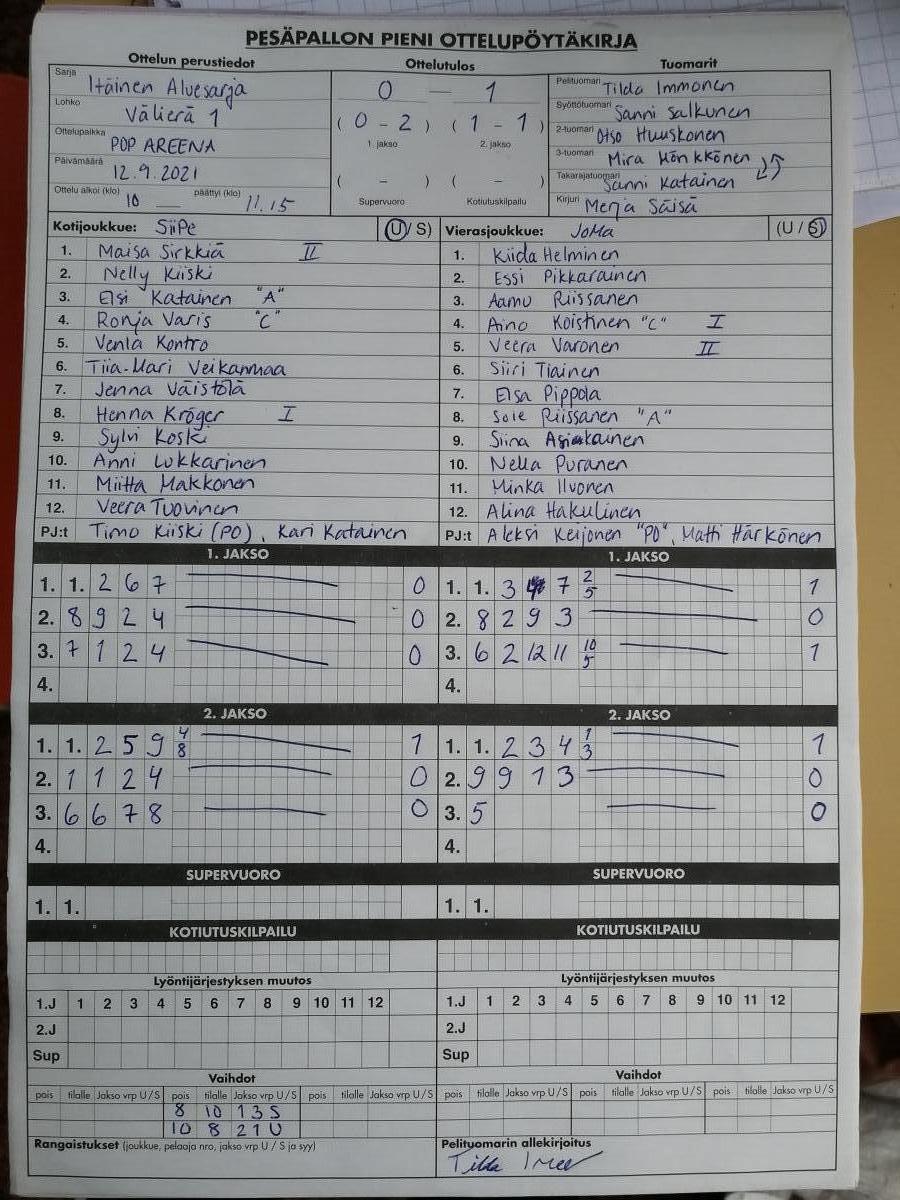 PESÄPALLON PIENI OTTELUPÖYTÄKIRJA
Ottelun perustiedot Ottelutulos Tuomarit
Sarja Itäinen Aluesarja
Lohko Välierä 1
Ottelupaikka POP AREENA
Päivämäärä 12.9.2021
Ottelu alkoi (klo) 10 — päättyi (klo) 11.15
0 — 1
( 0 - 2 ) ( 1 - 1 )
1. jakso 2. jakso
( - ) ( - )
Supervuoro Kotiutuskilpailu
Pelituomari Tilda Immonen
Syöttötuomari Sanni Salkunen
2-tuomari Otso Huuskonen
3-tuomari Mira Hönkkönen
Takarajatuomari Sanni Katainen
Kirjuri Merja Säisä
Kotijoukkue: SiiPe (U/S)
1. Maisa Sirkkiä II
2. Nelly Kiiski
3. Elsi Katainen "A"
4. Ronja Varis "C"
5. Venla Kontro
6. Tiia-Mari Veikanmaa
7. Jenna Väistölä
8. Henna Kröger I
9. Sylvi Koski
10. Anni Lukkarinen
11. Miitta Makkonen
12. Veera Tuovinen
PJ:t Timo Kiiski (PO), Kari Katainen
Vierasjoukkue: JoMa (U/S)
1. Kiida Helminen
2. Essi Pikkarainen
3. Aamu Riissanen
4. Aino Koistinen "C" I
5. Veera Varonen II
6. Siiri Tiainen
7. Elsa Pippola
8. Soie Riissanen "A"
9. Siina Asikainen
10. Nella Puranen
11. Minka Ilvonen
12. Alina Hakulinen
PJ:t Aleksi Keijonen "PO", Matti Härkönen
1. JAKSO
1. 1. 2 6 7 0
2. 8 9 2 4 0
3. 7 1 2 4 0
4.
1. JAKSO
1. 1. 3 4 7 2/5 1
2. 8 2 9 3 0
3. 6 2 12 11 10/5 1
4.
2. JAKSO
1. 1. 2 5 9 4/8 1
2. 1 1 2 4 0
3. 6 6 7 8 0
4.
2. JAKSO
1. 1. 2 3 4 1/3 1
2. 9 9 1 3 0
3. 5 0
4.
SUPERVUORO SUPERVUORO
1. 1. 1. 1.
KOTIUTUSKILPAILU KOTIUTUSKILPAILU
Lyöntijärjestyksen muutos Lyöntijärjestyksen muutos
1.J 1 2 3 4 5 6 7 8 9 10 11 12 1.J 1 2 3 4 5 6 7 8 9 10 11 12
2.J 2.J
Sup Sup
Vaihdot Vaihdot
pois tilalle Jakso vrp U/S pois tilalle Jakso vrp U/S pois tilalle Jakso vrp U/S pois tilalle Jakso vrp U/S pois tilalle Jakso vrp U/S pois tilalle Jakso vrp U/S
8 10 1 3 S
10 8 2 1 U
Rangaistukset (joukkue, pelaaja nro, jakso vrp U / S ja syy)
Pelituomarin allekirjoitus